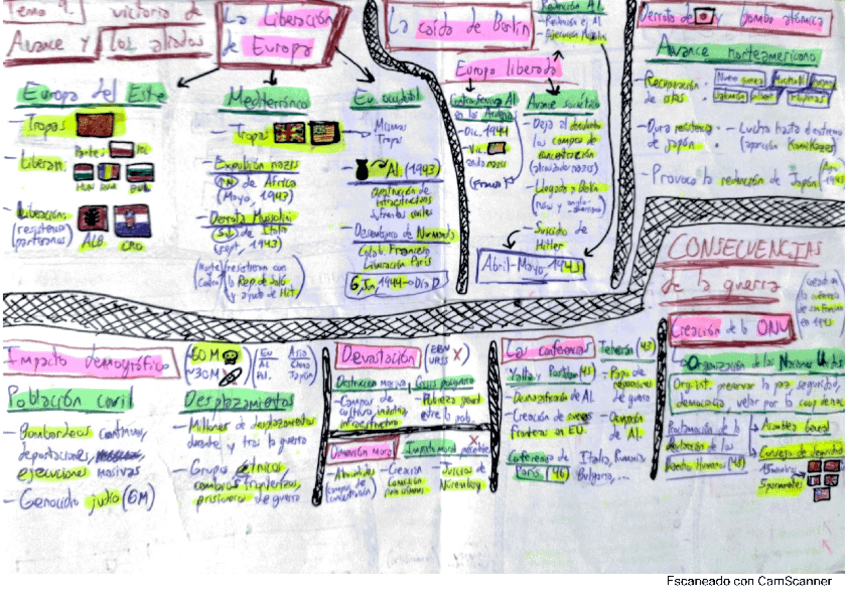 Tema 9. victoria de
Avance y los aliados
La Liberación
de Europa
Europa del Este
- Tropas
- Liberan:
HUN RUM BUL
- Liberación
(resistencia)
(partisanos)
ALB CRO
Mediterráneo
- Tropas
- Expulsión nazis
de África
(Mayo, 1943)
- Derrota Mussolini
de Italia
(sept, 1943)
resistieron con
la Rep. de Saló
y ayuda de Hit
Eu. occidental
Mismas
Tropas
Al. (1943)
construcción de
infraestructuras
- Desembarco de Normandía
Colab. Francesa
Liberación París
6, Jun, 1944 → Día D
La caída de Berlín
Rendición Al.
Europa liberada
Contraofensiva Al
en las Ardenas
- Dic. 1944
Avance soviético
- Deja al descubierto
los campos de
concentración
- Llegada a Berlín
- Suicidio de
Hitler
Abril-Mayo, 1945
Derrota de y bomba atómica
Avance norteamericano
- Recuperación
de islas
Nueva Guinea
Filipinas
- Dura resistencia
de Japón
- Lucha hasta el extremo
(aparición Kamikazes)
- Provoca la rendición de Japón (Ago, 1945)
CONSECUENCIAS
de la guerra
Impacto demográfico
60 M
~30M
EU Asia
AL China
Al. Japón
Población civil
- Bombardeos continuos,
deportaciones,
ejecuciones masivas
- Genocidio judío (6M)
Desplazamientos
- Millones de desplazados
durante y tras la guerra
- Grupos étnicos,
cambios fronterizos,
prisioneros de guerra
Devastación
URSS
Destrucción masiva
- Campos de
cultivo, industria,
infraestructuras
Crisis posguerra
- Pobreza gnral
entre la pob.
Dimensión moral
- Atrocidades
(campos de
concentración)
Impacto moral
- Creación
- Juicios de
Núremberg
Las conferencias
Yalta y Potsdam (45)
- Desnazificación de Al.
- Creación de nuevas
fronteras en EU.
Teherán (43)
- Pago de
reparaciones
de guerra
- Ocupación
de Al.
Conferencia de
París. (46)
Italia, Rumanía
Bulgaria, ...
Creación de la ONU
La Organización de las Naciones Unidas
Org. int. preservar la paz, seguridad,
democracia, velar por la coop. internac.
Proclamación de la
declaración de los
Derechos Humanos (48)
Asamblea General
Consejo de Seguridad
15 miembros
5 permanentes
Escaneado con CamScanner